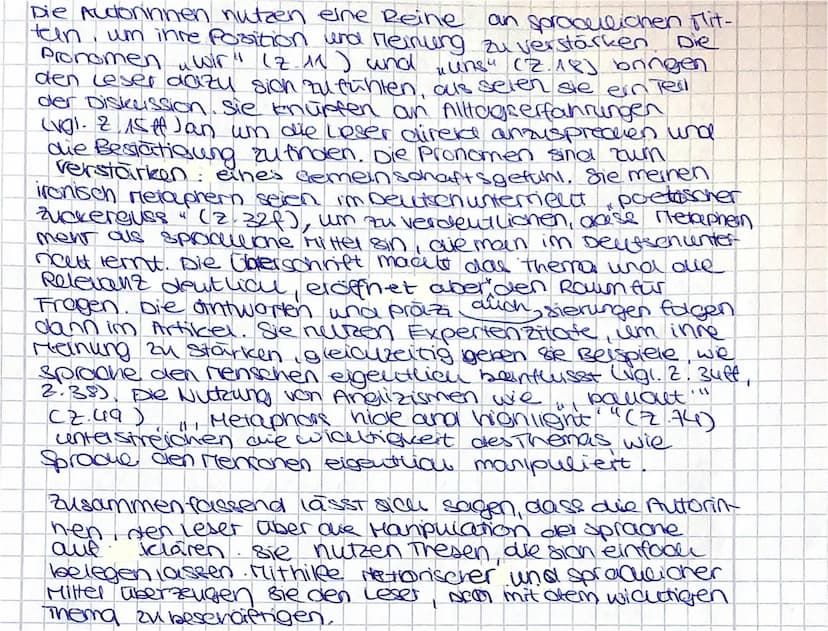 Die Autorinnen nutzen eine Reihe an sprachlichen Mit-
teln, um ihre Position und Meinung zu verstärken. Die
Pronomen „wir" (Z. 11) und „uns" (Z. 18) bringen
den Leser dazu sich zu fühlen, als seien sie ein Teil
der Diskussion. Sie knüpfen an Alltagserfahrungen
(vgl. Z. 15ff) an um die Leser direkt anzusprechen und
die Bestätigung zu finden. Die Pronomen sind zum
verstärken eines Gemeinschaftsgefühl. Sie meinen
ironisch Metaphern seien im Deutschunterricht „poetischer
Zuckerguss" (Z. 22f), um zu verdeutlichen, dass Metaphern
mehr als sprachliche Mittel sin, die man im Deutschunter-
richt lernt. Die Überschrift macht das Thema und die
Relevanz deutlich, eröffnet aber den Raum für
Fragen. Die Antworten und präzi auch sierungen folgen
dann im Artikel. Sie nutzen Expertenzitate, um ihre
Meinung zu stärken, gleichzeitig geben sie Beispiele, wie
Sprache den Menschen eigentlich beinflusst (vgl. Z. 34ff,
Z. 38). Die Nutzung von Anglizismen wie „‚payout'"
(Z. 49), „‚Metaphors hide and highlight'" (Z. 74)
unterstreichen die Wichtigkeit des Themas, wie
Sprache den Menschen eigentlich manipuliert.
Zusammenfassend lässt sich sagen, dass die Autorin-
nen, den Leser über die Manipulation der Sprache
auf klären. Sie nutzen Thesen, die sich einfach
belegen lassen. Mithilfe rhetorischer und sprachlicher
Mittel überzeugen sie den Leser, sich mit dem wichtigen
Thema zu beschäftigen.